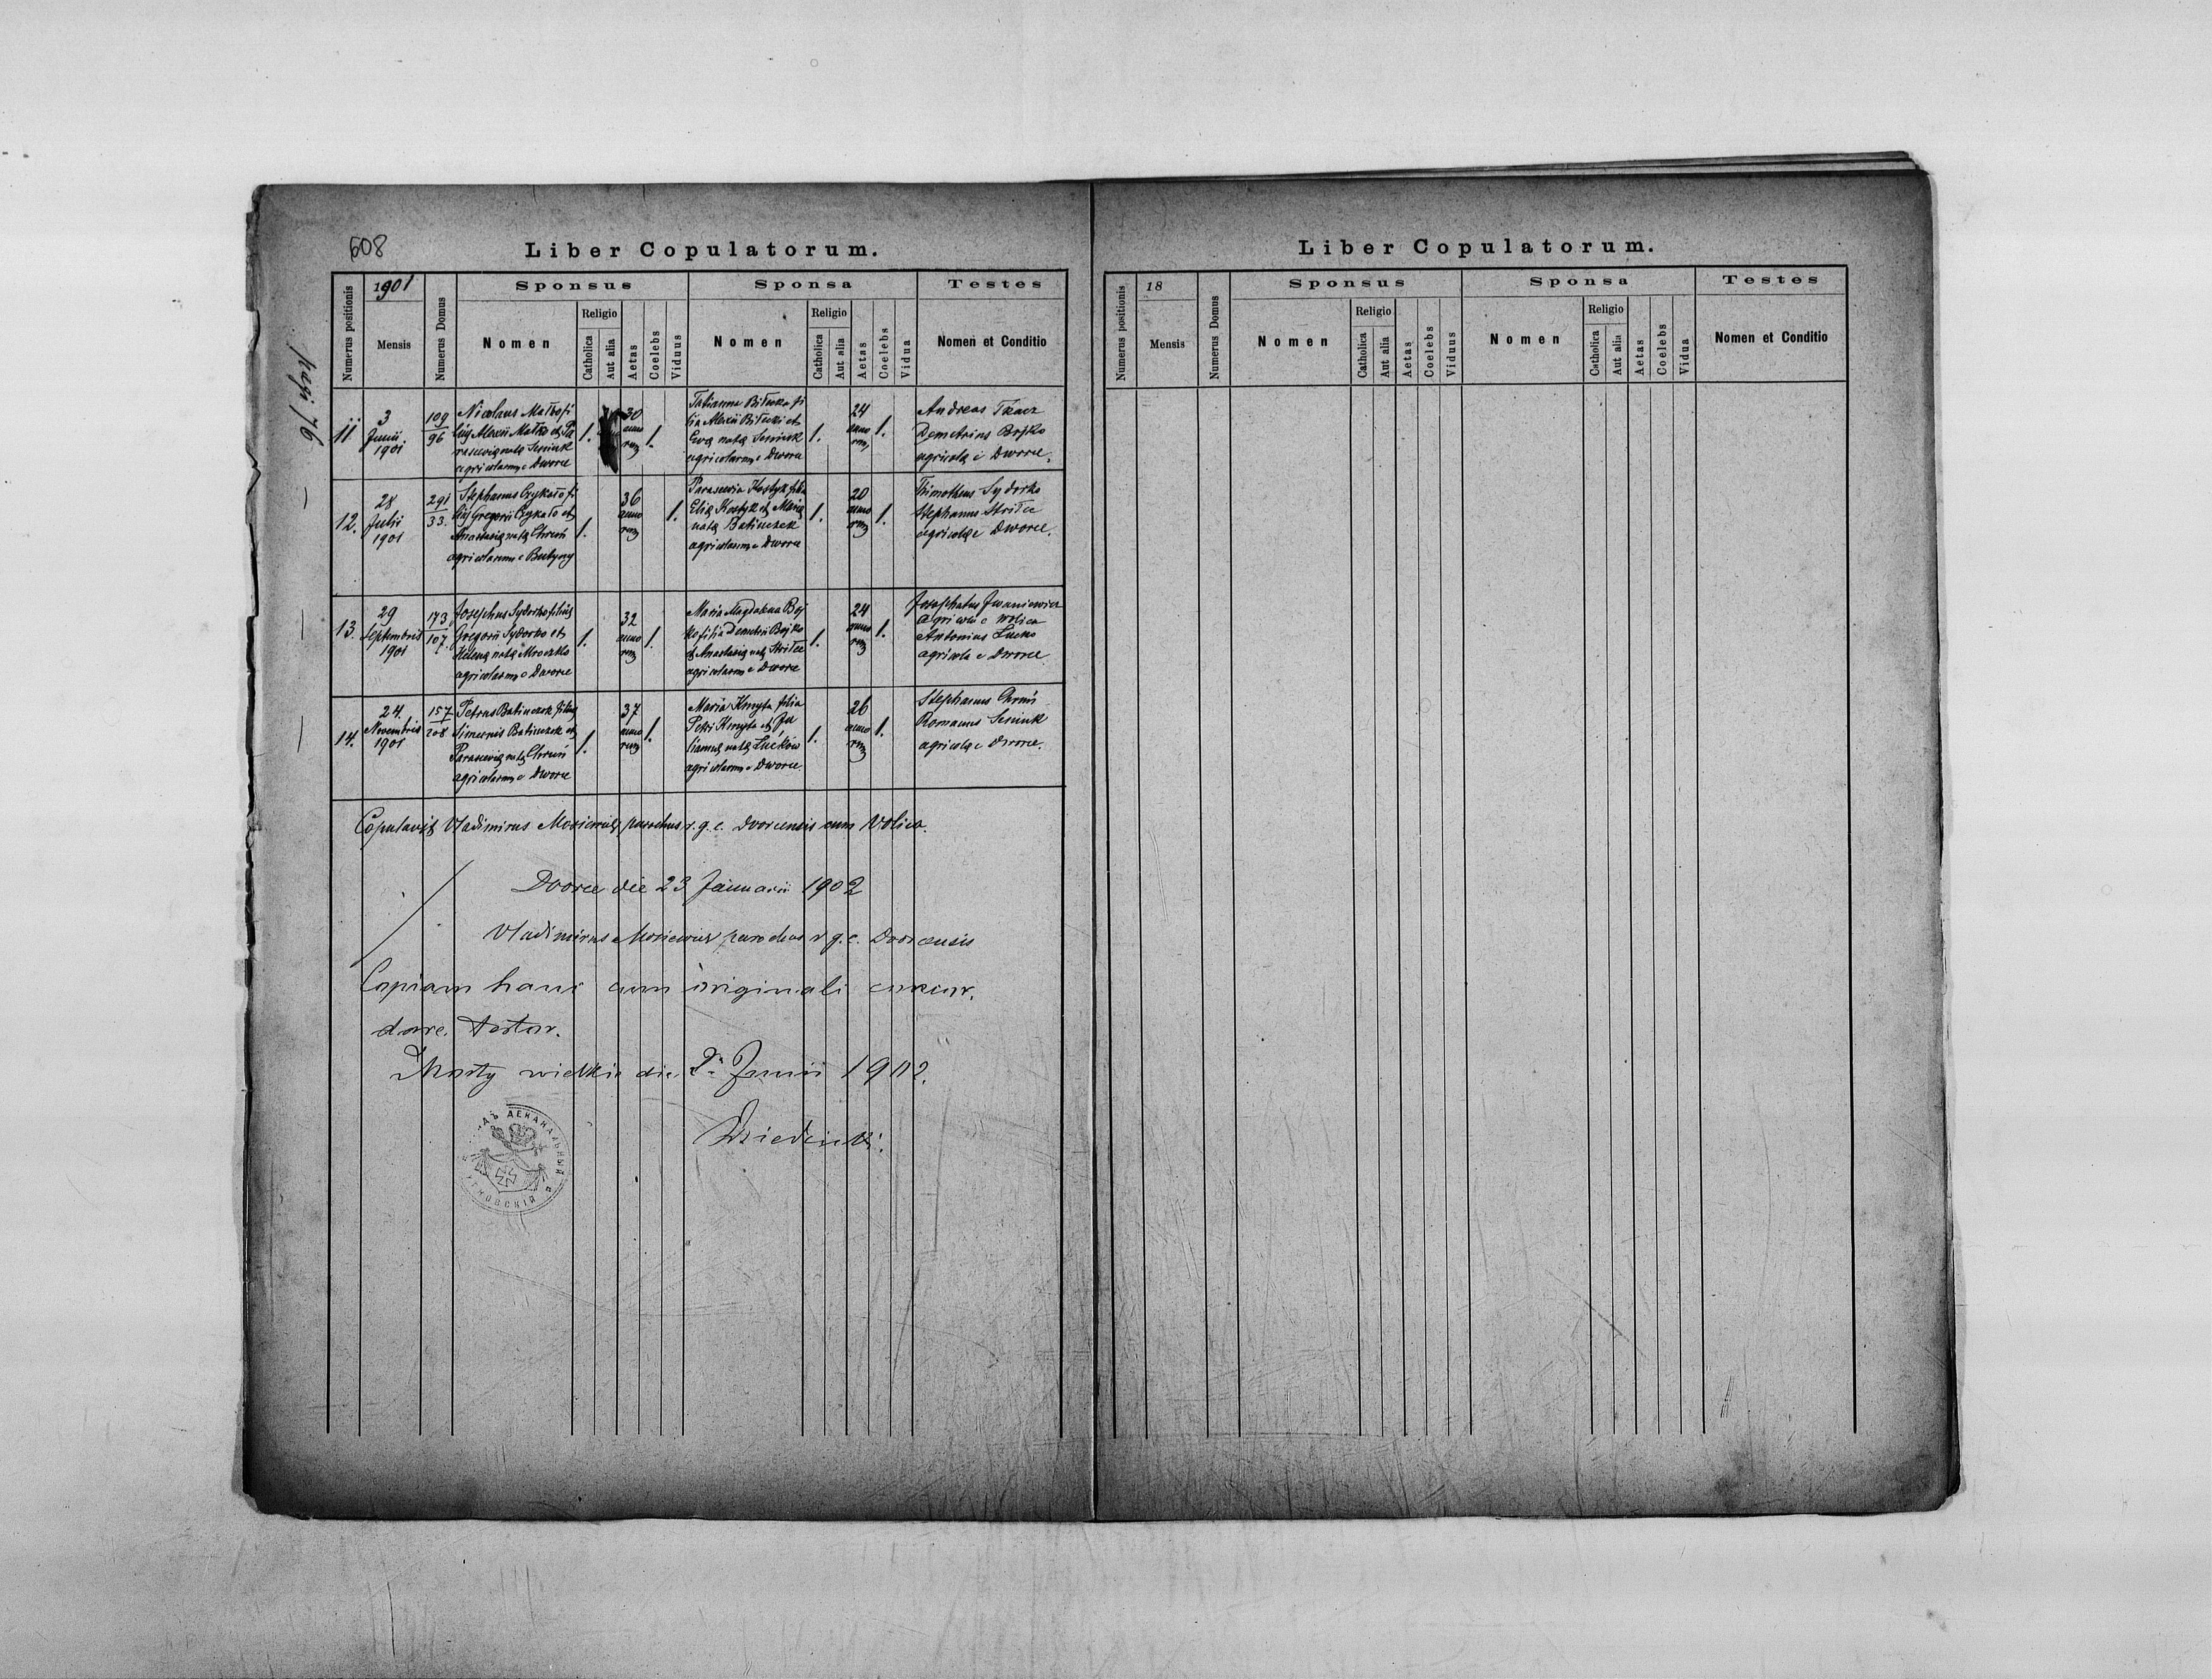 608
Liber Copulatorum.
pagi 76
Numerus positionis
1901
Mensis
Numerus Domus
Sponsus
Nomen
Religio
Catholica
Aut alia
Aetas
Coelebs
Viduus
Sponsa
Nomen
Religio
Catholica
Aut alia
Aetas
Coelebs
Vidua
Testes
Nomen et Conditio
11
3
Junii.
1901
109
96
Nicolaus Matło fi
lius Alexii Matło et Pa
rasceviæ natæ Seniuk
agricolarum e Dworce
1.
30
anno
rum
1.
Tatianna Biłecka fi
lia Alexii Biłecki et
Evæ natæ Seniuk
agricolarum e Dworce
1.
24
anno
rum
1.
Andreas Tkacz
Demetrius Bojko
agricolæ e Dworce.
12.
28
Julii
1901
291
33.
Stephanus Czykało fi
lius Gregorii Czykało et
Anastasiæ natæ Chreń
agricolarum e Butyny
1.
36
anno
rum
1.
Parascevia Kostyk filia
Eliæ Kostyk et Mariæ
natæ Batiuczek
agricolarum e Dworce
1.
20
anno
rum
1.
Thimotheus Sydorko
Stephanus Striłec
agricolæ e Dworce.
13.
29
Septembris
1901
173
107.
Josephus Sydorko filius
Gregorii Sydorko et
Helenæ natæ Mroczko
agricolarum e Dworce
1.
32
anno
rum
1.
Maria Magdalena Boj
ko filia Demetrii Bojko
et Anastasiæ natæ Striłec
agricolarum e Dworce
1.
24
anno
rum
1.
Josaphatus Iwaniewicz
agricola e Wolica
Antonius Lucko
agricola e Dworce
14.
24.
Novembris
1901
157
208
Petrus Batiuczek filius
Simeonis Batiuczek et
Parasceviæ natæ Chreń
agricolarum e Dworce
1.
37
anno
rum
1.
Maria Kmyta filia
Petri Kmyta et Ju
liannæ natæ Luckow
agricolarum e Dworce.
1.
26
anno
rum
1.
Stephanus Chreń
Romanus Seniuk
agricolæ e Dworce.
Copulavit Vladimirus parochus r. g. c. Dvorcensis cum Volica.
Dvorce die 23 Januarii 1902
Vladimirus parochus r. g. c. Dvorcensis
Copiam hanc cum originali concor.
dare. testor.
Mosty wielkie die 2. Junii 1902.
ДЕКАНАЛЬНЫЙ
Liber Copulatorum.
Numerus positionis
18
Mensis
Numerus Domus
Sponsus
Nomen
Religio
Catholica
Aut alia
Aetas
Coelebs
Viduus
Sponsa
Nomen
Religio
Catholica
Aut alia
Aetas
Coelebs
Vidua
Testes
Nomen et Conditio